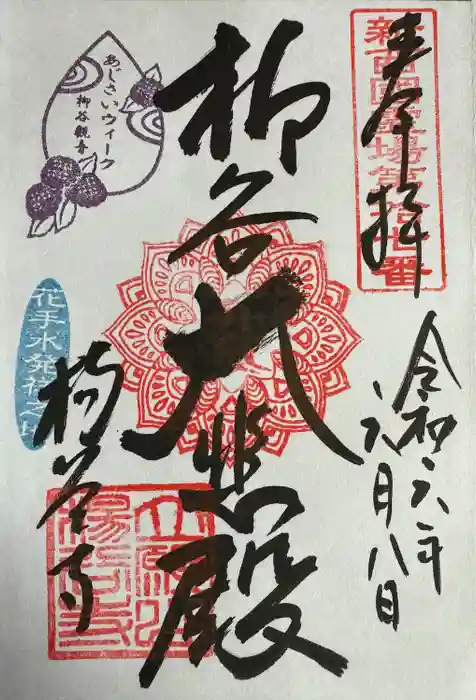 奉拝
新西國霊場第拾七番
令和六年
六月八日
柳谷大悲殿
あじさいウィーク
柳谷観音
花手水発祥之地
楊谷寺